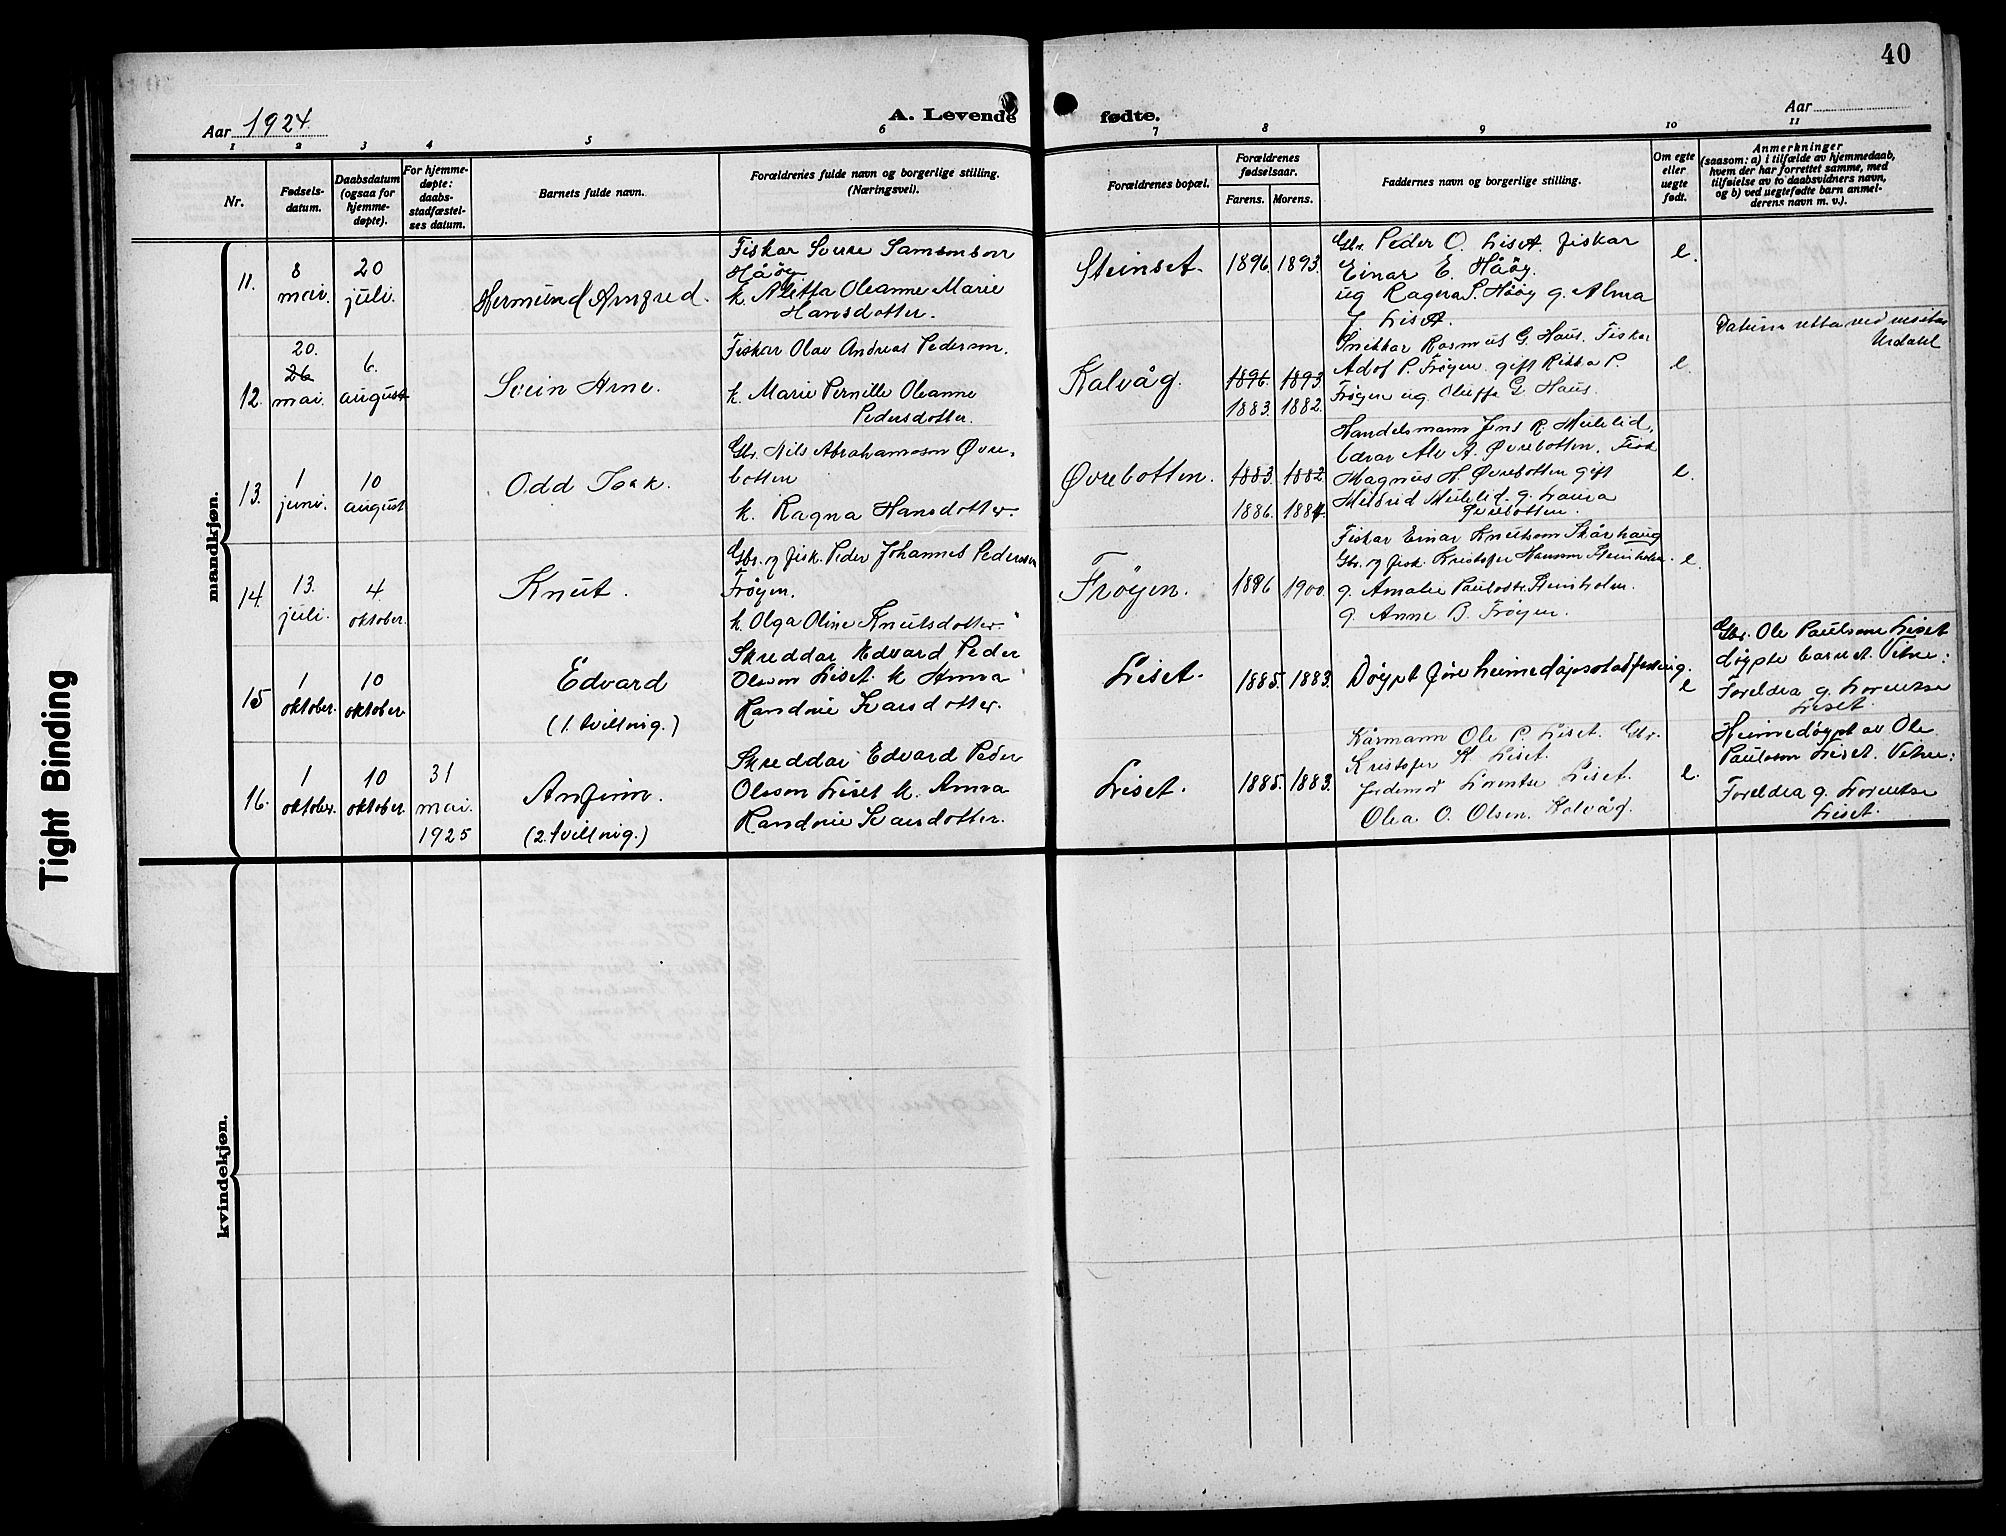 40
Aar 1924.
A. Levende fødte.
Aar
1 2 3 4 5 6 7 8 9 10 11
Nr.
Fødsels-
datum.
Daabsdatum
(ogsaa for
hjemme-
døpte).
For hjemme-
døpte:
daabs-
stadfæstel-
ses datum.
Barnets fulde navn.
Forældrenes fulde navn og borgerlige stilling.
(Næringsvei).
Forældrenes bopæl.
Forældrenes
fødselsaar.
Farens. Morens.
Faddernes navn og borgerlige stilling.
Om egte
eller
uegte
født.
Anmerkninger
(saasom: a) i tilfælde av hjemmedaab,
hvem der har forrettet samme, med
tilføielse av to daabsvidners navn,
og b) ved uegtefødte barn anmel-
derens navn m. v.).
mandkjøn.
11.
8
mai.
20
juli.
Hermund Arnfred.
Fiskar Sverre Samsonson
Håøy
k. Aletta Oleanne Marie
Hansdotter.
Steinset.
1896. 1893.
Gbr. Peder O. Liset. fiskar
Einar E. Håøy.
ug Ragna S. Håøy g. Alma
J. Liset.
e.
12.
20.
26
mai.
6.
august
Svein Arne.
Fiskar Olav Andreas Pederson.
k. Marie Pernille Oleanne
Pedersdotter.
Kalvåg.
1896. 1893.
1883. 1882.
Snikkar Rasmus G. Haus. Fiskar
Adof P. Frøyen. gift Rikka P.
Frøyen ug. Oleffa G. Haus.
e.
Datum retta ved
Urdahl
13.
1
juni.
10
august
Odd Isak.
Gbr. Nils Abrahamson Øvre-
botten
k. Ragna Hansdotter.
Øvrebotten.
1883. 1882
1886. 1884.
Handelsmann Jens R. Myklid,
Alv A. Øvrebotten. Fisk
Magnus H. Øvrebotten gift
Mildrid g. Laura
Øvrebotten.
e.
14.
13.
juli.
4
oktober.
Knut.
Gbr. og fisk. Peder Johannes Pederson
Frøyen.
k. Olga Oline Knutsdotter.
Frøyen.
1896 1900.
Fiskar Einar Knutson Skårhaug
Gbr. og fisk. Kristofer Hanson Steinholm.
g. Amalie Paulsdtr. Steinholm.
g. Anne B. Frøyen.
e.
15
1
oktober.
10
oktober.
Edvard
(1. tvilling.)
Skreddar Edvard Peder
Olsson Liset. k Anna
Randine Larsdotter.
Liset.
1885. 1883.
Døypt før heimedåpsstadfesting.
e
Gbr. Ole Paulsson Liset
døypte barnet. Vitne:
Foreldra g. Lorentse
Liset.
16.
1
oktober.
10
oktober.
31
mai.
1925
Anfinn.
(2. tvilling.)
Skreddar Edvard Peder
Olsson Liset k. Anna
Randine Larsdotter.
Liset.
1885. 1883.
Kårmann Ole P. Liset. Gbr.
Kristofer H. Liset.
Jordemor Lorentse Liset.
Olea O. Olsen. Kalvåg.
e.
Heimedøypt av Ole
Paulsson Liset. Vitne:
Foreldra g. Lorentse
Liset.
kvindekjøn.
Tight Binding